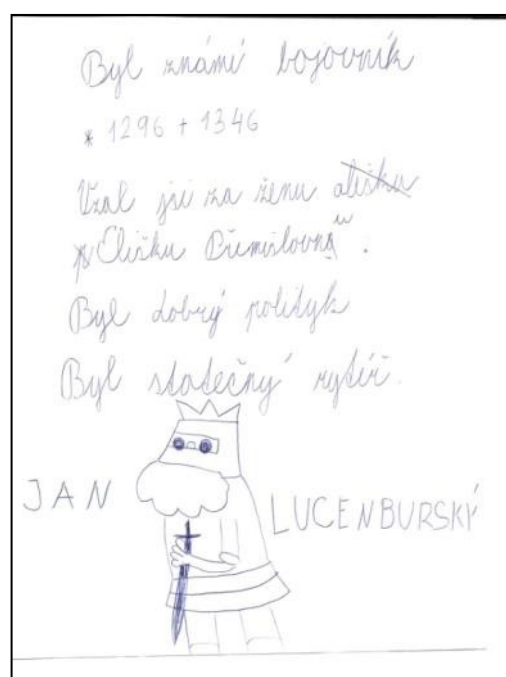 Byl známí bojovník
* 1296 + 1346
Vzal jsi za ženu
Elišku Přemislovnu.
Byl dobrý polityk
Byl statečný rytíř.
JAN LUCENBURSKÝ